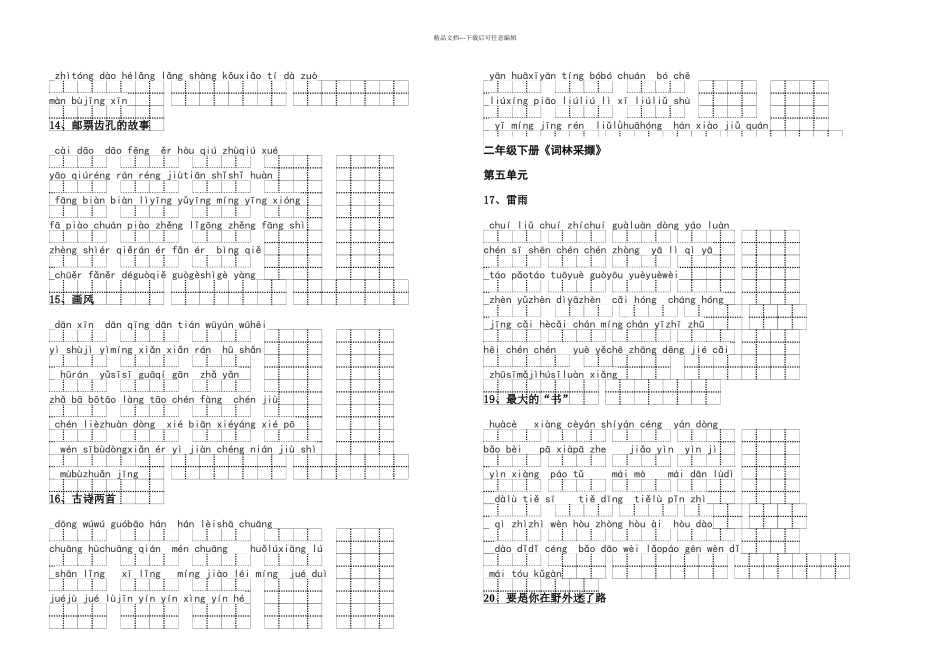 精品文档---下载后可任意编辑
zhìtóng dào hélǎng lǎng shàng kǒuxiāo tí dà zuò
màn bùjīng xīn
14、邮票齿孔的故事
cài dāo dāo fēng ěr hòu qiú zhùqiú xué
yāo qiúréng rán réng jiùtiān shǐshǐ huàn
fāng biàn biàn lìyīng yǔyīng míng yīng xióng
fā piào chuán piào zhěng lǐgōng zhěng fāng shì
zhèng shìér qiěrán ér fǎn ér bìng qiě
chūěr fǎněr déguòqiě guògèshìgè yàng
15、画风
dān xīn dān qīng dān tián wūyún wūhēi
yì shùjì yìmíng xiǎn xiǎn rán hū shǎn
hūrán yǔsīsī guāqí gān zhǎ yǎn
zhǎ bā bōtāo làng tāo chén fàng chén jiù
chén lièzhuàn dòng xié biān xiéyáng xié pō
wén sībùdòngxiǎn ér yì jiàn chéng nián jiù shì
mùbùzhuǎn jīng
16、古诗两首
dōng wúwú guóbāo hán hán lèishā chuāng
chuāng hùchuāng qián mén chuāng huǒlúxiāng lú
shān lǐng xī lǐng míng jiào léi míng jué duì
juéjù jué lùjīn yín yín xìng yín hé
yān huāxīyān tíng bóbó chuán bó chē
liúxíng piāo liúliú lì xī liúliǔ shù
yī míng jīng rén liǔlǜhuāhóng hán xiào jiǔ quán
二年级下册《词林采撷》
第五单元
17、雷雨
chuí liǔ chuí zhíchuí guàluàn dòng yáo luàn
chén sī shēn chén chén zhòng yā lì qì yā
táo pǎotáo tuōyuè guòyōu yuèyuèwèi
zhèn yǔzhèn dìyāzhèn cǎi hóng cháng hóng
jīng cǎi hècǎi chán míng chán yīzhī zhū
hēi chén chén yuè yěchē zhāng dēng jié cǎi
zhūsīmǎjìhúsīluàn xiǎng
19、最大的“书”
huàcè xiàng cèyán shíyán céng yán dòng
bǎo bèi pā xiàpā zhe jiǎo yìn yìn jì
yìn xiàng páo tǔ mái mò mái dān lùdì
dàlù tiě sī tiě dīng tiělù pīn zhì
qì zhìzhì wèn hòu zhòng hòu ài hòu dào
dào dǐdǐ céng bǎo dāo wèi lǎopáo gēn wèn dǐ
mái tóu kǔgàn
20、要是你在野外迷了路